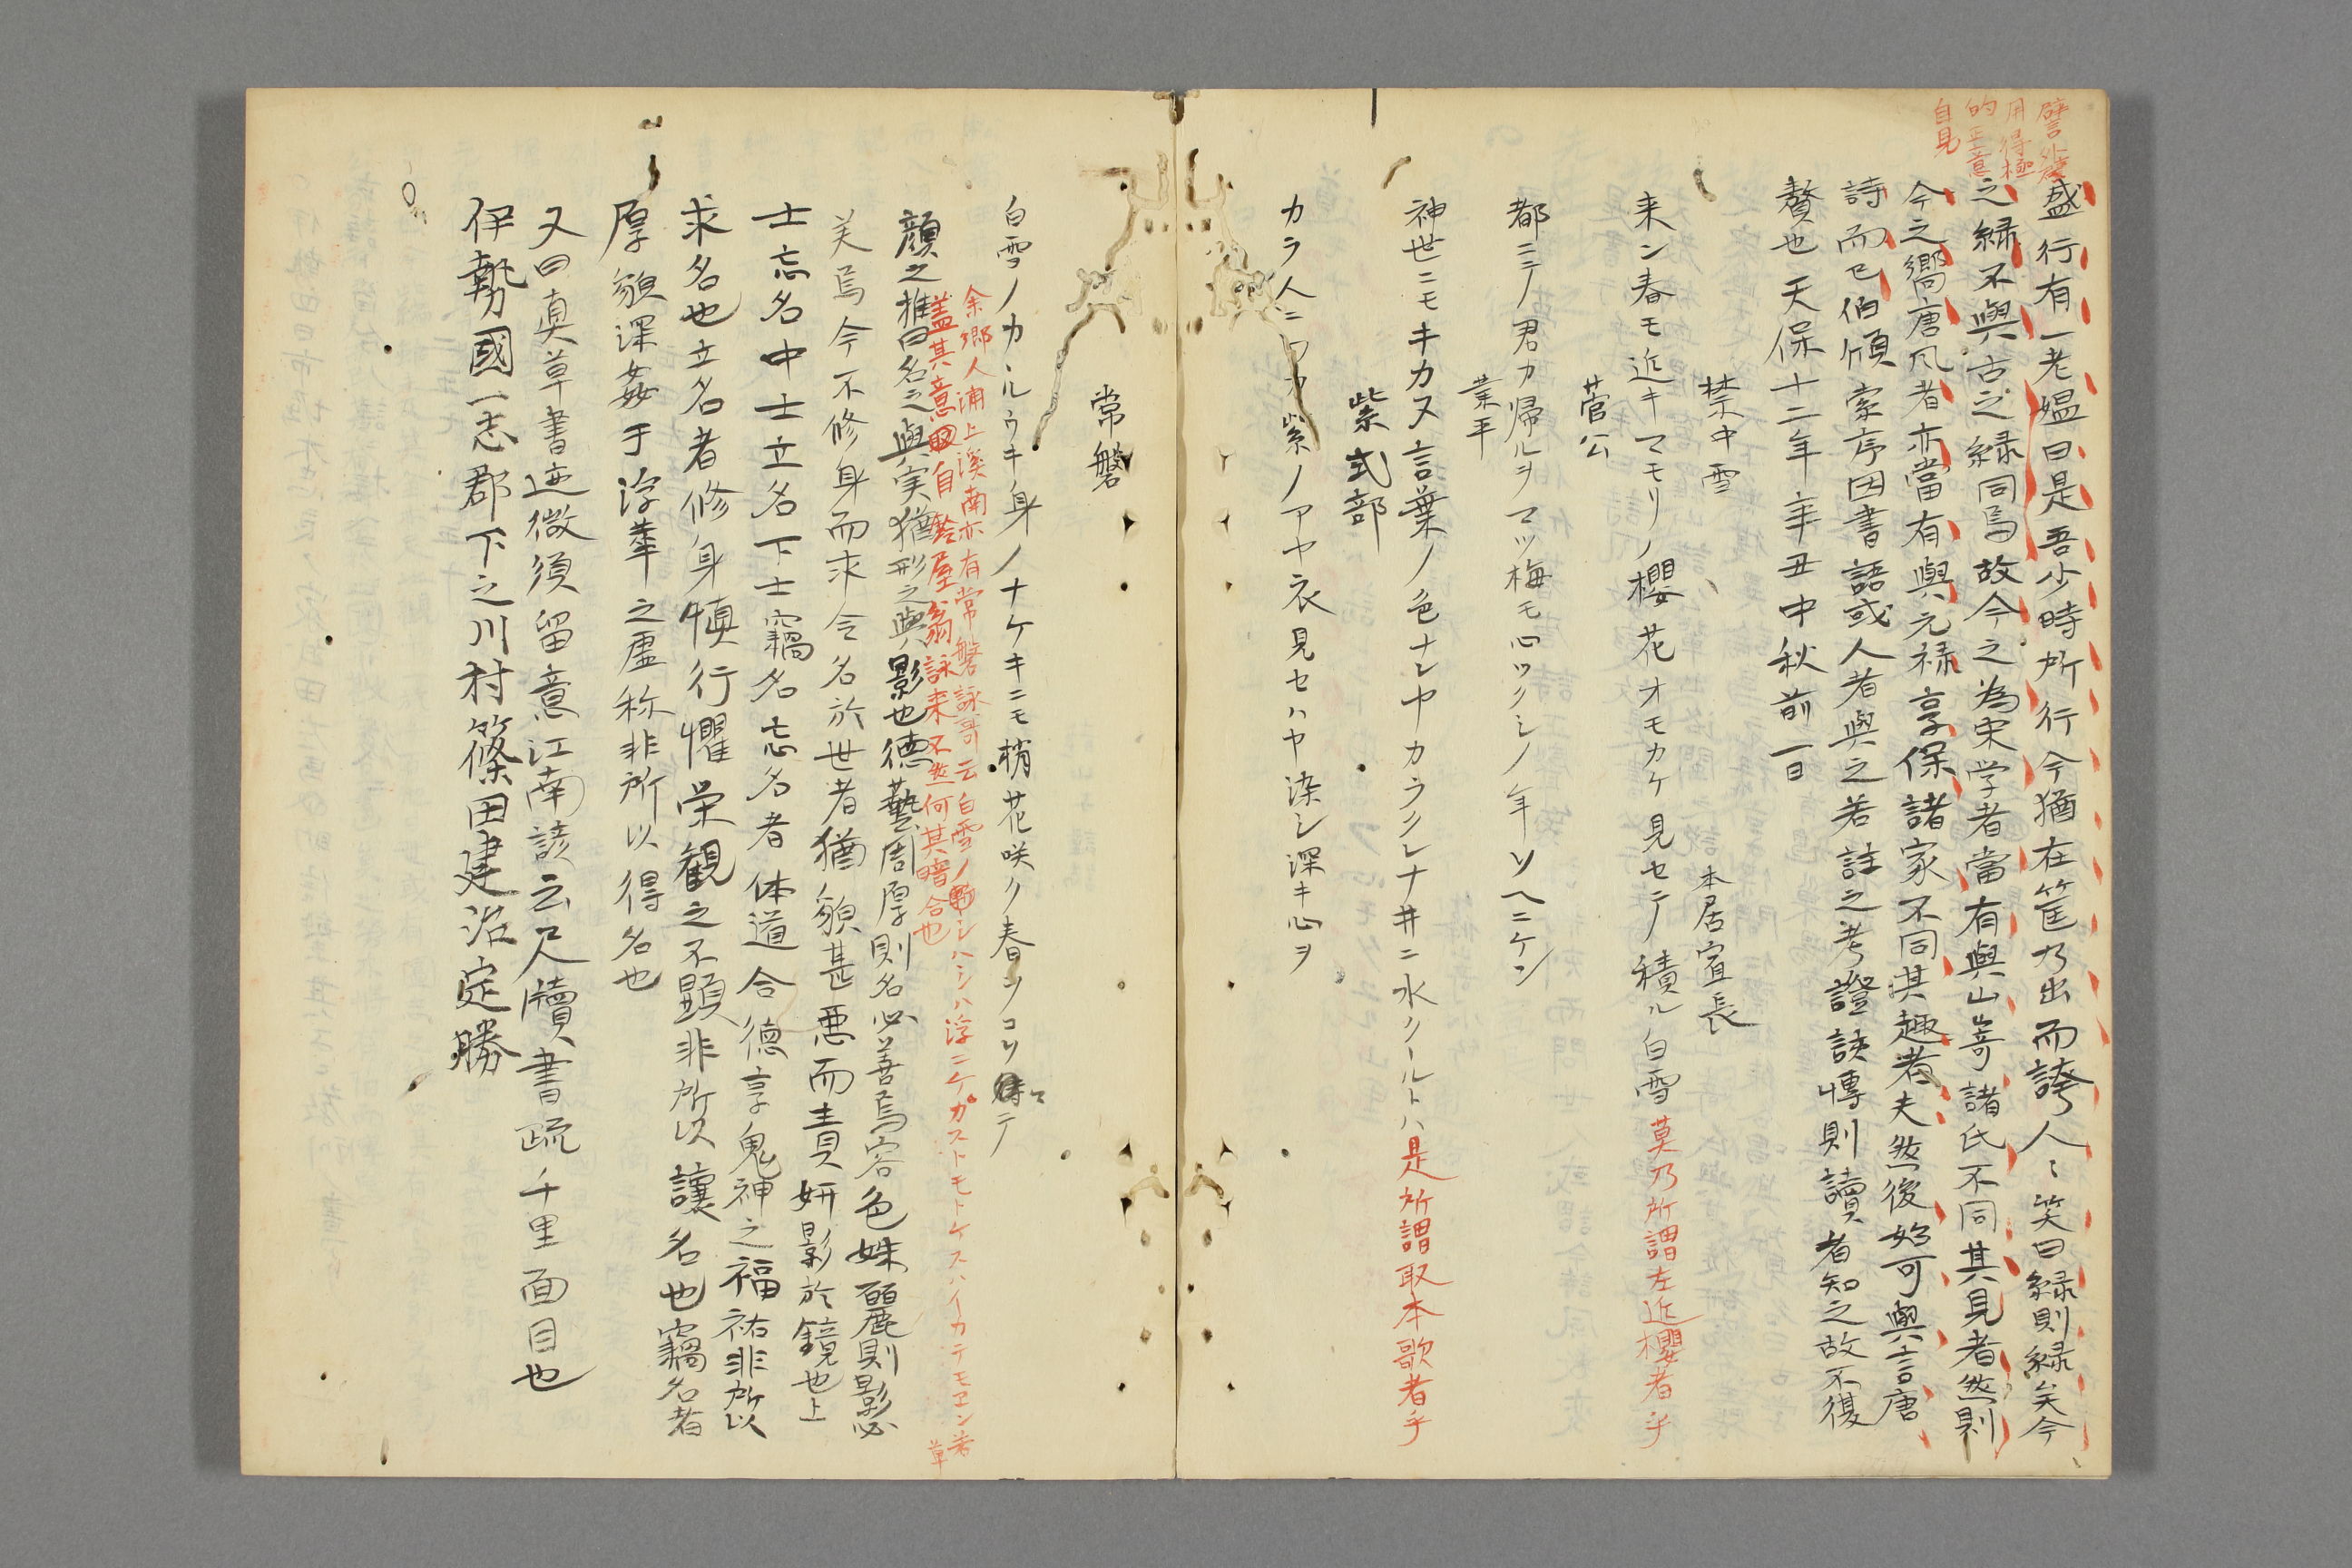 譬発
用得極
的主意
自見
盛行有一老媼曰是吾少時所行今猶在筐乃出而誇人〻笑曰緑則緑矣今
之緑不與古之緑同焉故今之為宋学者當有與山嵜諸氏不同其見者然則
今之嚮唐風者亦當有與元禄享保諸家不同其趣者夫然後始可與言唐
詩而已伯頎索序因書語或人者與之若註之考證誤愽則讀者知之故不復
贅也天保十二年辛丑中秋前一日
禁中雪 本居宣長
来ン春モ近キマモリノ櫻花オモカケ見セテ積ル白雪莫乃所謂左近櫻者乎
菅公
都ニテ君カ帰ルヲマツ梅モ心ツクシノ年ソヘニケン
業平
神世ニモキカヌ言葉ノ色ナレヤカラクレナ井ニ水クヽルトハ是所謂取本歌者乎
紫式部
カラ人ニワカ紫ノアヤ衣見セハヤ染シ深キ心ヲ
常磐
白雪ノカヽルウキ身ノナケキニモ梢花咲ク春ソコソ待テ
余郷人浦上溪南亦有常磐詠哥云白雪ノ暫シハシハ浮ニケガストモトケスハイカテモエン若草
蓋其意自鈴屋翁詠来不然何其暗合也
顔之推曰名之與実猶形之與影也徳藝周厚則名必善焉容色姝麗則影必
美焉今不修身而求令名於世者猶貌甚悪而責妍影於鏡也上
士忘名中士立名下士竊名忘名者体道合徳享鬼神之福祐非所以
求名也立名者修身慎行懼栄観之不顕非所以讓名也竊名者
厚貌深姦于浮華之虚称非所以得名也
又曰真草書迹微須留意江南諺云尺牘書疏千里面目也
伊勢國一志郡下之川村篠田建治定勝